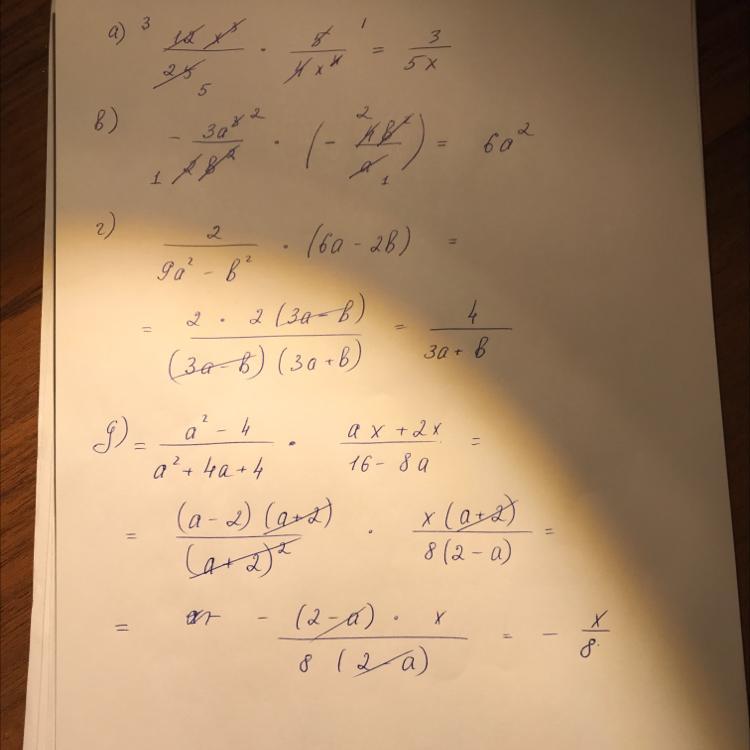 а) 12x³/25 · 5/4x⁴ = 3/5x
в) - 3a³/2b² · (- 4b²/a) = 6a²
г) 2/9a² - b² · (6a - 2b) =
= 2 · 2(3a - b)/(3a - b)(3a + b) = 4/3a + b
g) = a² - 4/a² + 4a + 4 · ax + 2x/16 - 8a =
= (a - 2)(a + 2)/(a + 2)² · x(a + 2)/8(2 - a) =
= - (2 - a) · x/8(2 - a) = - x/8